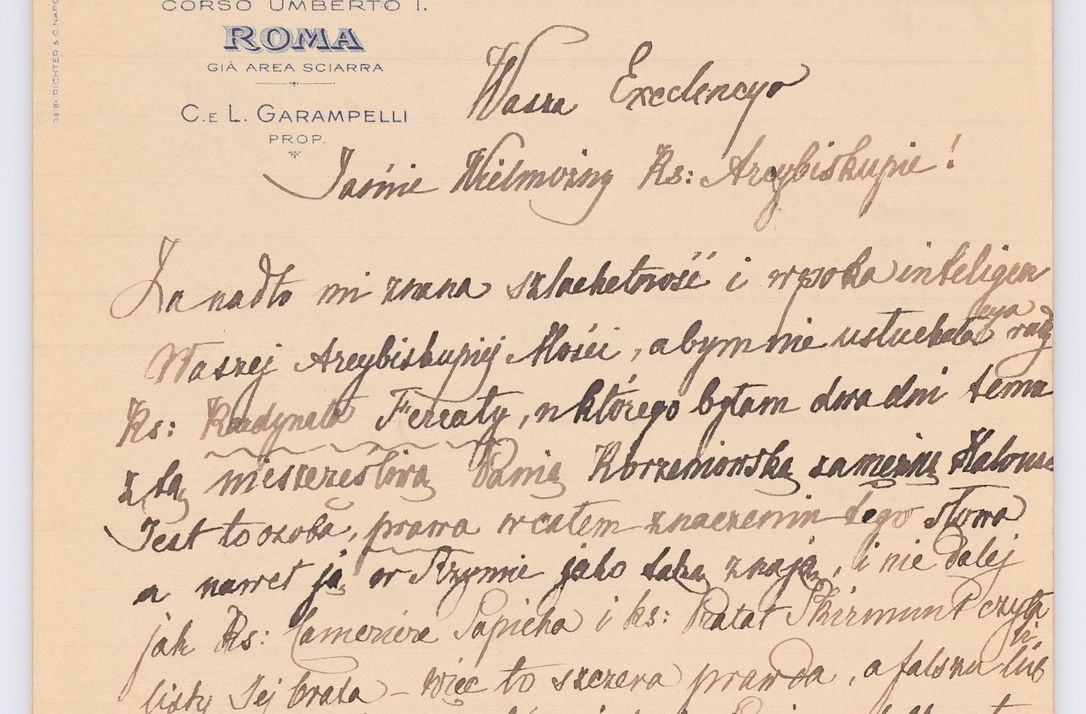 CORSO UMBERTO I.
ROMA
GIÀ AREA SCIARRA
C. E L. GARAMPELLI
PROP.
Wasza Excelencyo
Jaśnie Wielmożny Ks: Arcybiskupie!
Za nadto mi znana szlachetność i wysoka inteligen
cya
Waszej Arcybiskupiej Mości, abym nie usłuchała rady
Ks: Kardynała Ferraty, u którego byłam dwa dni temu
z tą nieszczęśliwą Panią Korzeniowską zamężną
Jest to osoba, prawa w całem znaczeniu tego słowa
a nawet ją w Rzymie jako taką znają, i nie dalej
jak Ks: Cameriere Sapieha i ks: Prałat Skirmunt czyta
li
listy Jej brata – więc to szczera prawda, a fałszu lub